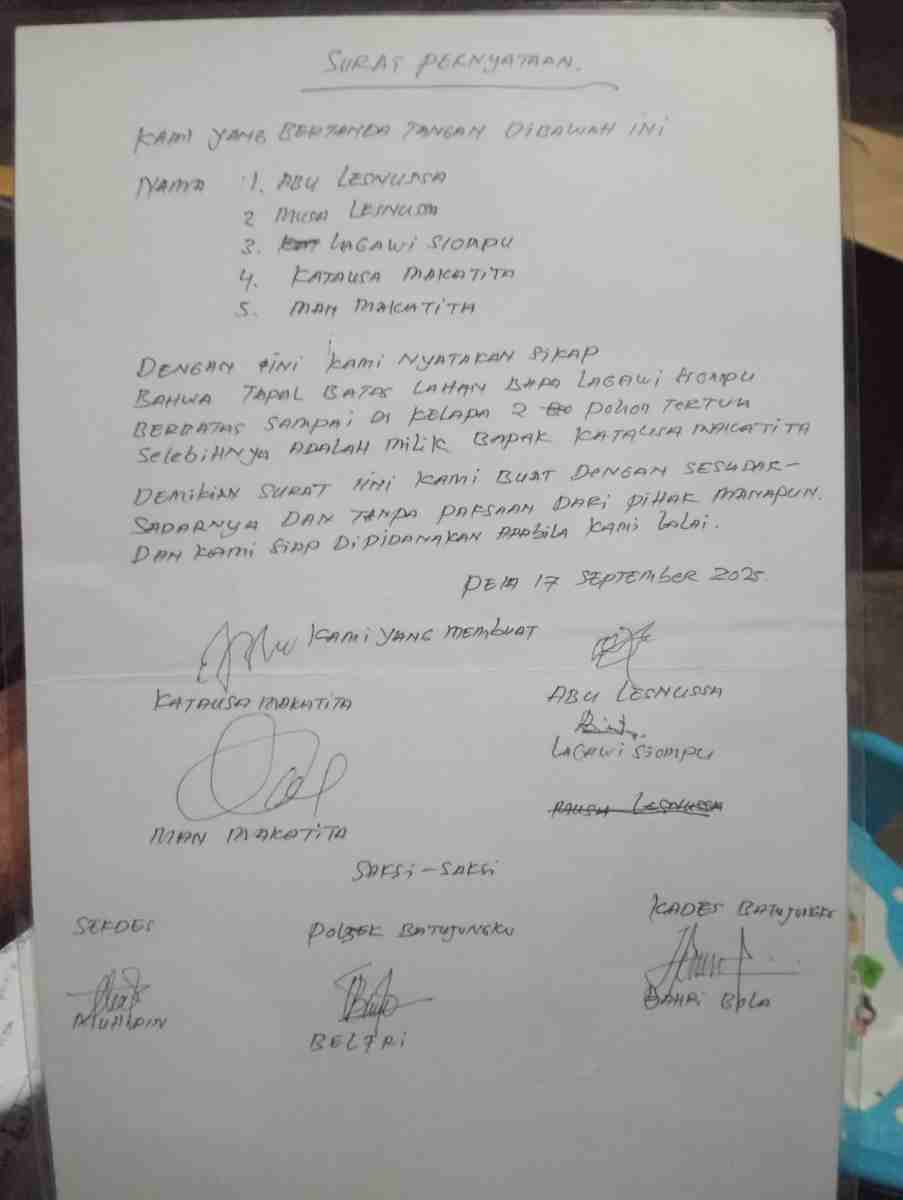 SURAT PERNYATAAN.
KAMI YANG BERTANDA TANGAN DIBAWAH INI
NAMA : 1. ABU LESNUSSA
2 MUSA LESNUSSA
3. LAGAWI SIOMPU
4. KATAUSA MAKATITA
5. MAN MAKATITA
DENGAN INI KAMI NYATAKAN SIKAP
BAHWA TAPAL BATAS LAHAN BAPA LAGAWI SIOMPU
BERBATAS SAMPAI DI KELAPA 2 POHON TERTUA
SELEBIHNYA ADALAH MILIK BAPAK KATAUSA MAKATITA
DEMIKIAN SURAT INI KAMI BUAT DENGAN SESUDAR-
SADARNYA DAN TANPA PAKSAAN DARI PIHAK MANAPUN.
DAN KAMI SIAP DIPIDANAKAN APABILA KAMI LALAI.
PELA 17 SEPTEMBER 2025.
KAMI YANG MEMBUAT
KATAUSA MAKATITA
ABU LESNUSSA
LAGAWI SIOMPU
MAN MAKATITA
LESNUSSA
SAKSI-SAKSI
SEKDES
POLSEK BATUJUNGKU
KADES BATUJUNGKU
MUHIDIN
BELTRI
BAHRI BOLA